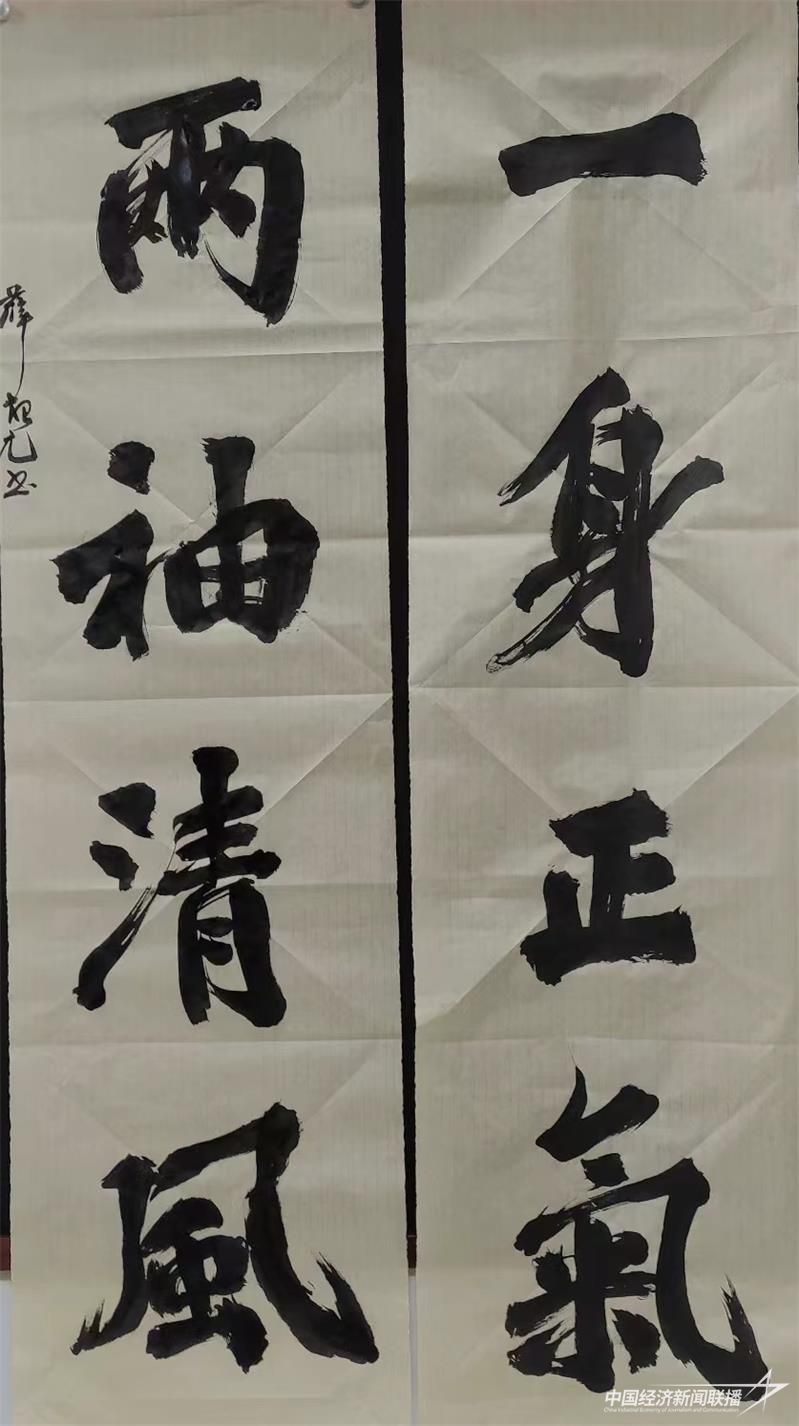 一身正氣
兩袖清風
薛旭光书
中国经济新闻联播
China Industrial Economy of Journalism and Communication